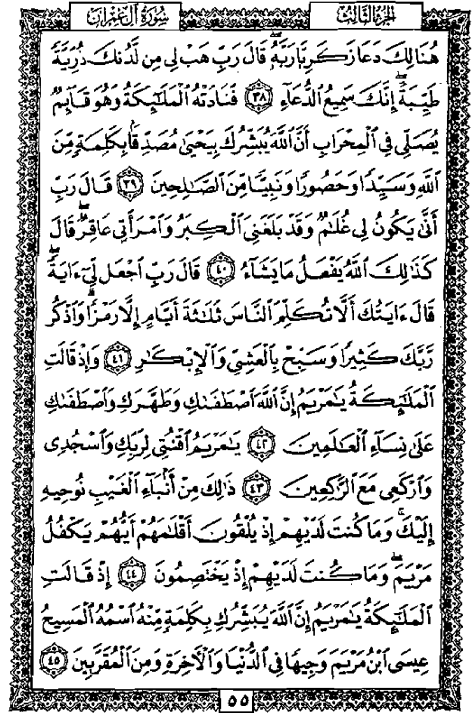 سُورَةُ آلِ عِمْرَانَ
الجُزْءُ الثَّالِثُ
هُنَالِكَ دَعَا زَكَرِيَّا رَبَّهُۥۖ قَالَ رَبِّ هَبْ لِى مِن لَّدُنكَ ذُرِّيَّةً
طَيِّبَةًۖ إِنَّكَ سَمِيعُ الدُّعَآءِ ٣٨ فَنَادَتْهُ الْمَلَـٰٓئِكَةُ وَهُوَ قَآئِمٌ
يُصَلِّى فِى الْمِحْرَابِ أَنَّ اللَّهَ يُبَشِّرُكَ بِيَحْيَىٰ مُصَدِّقًۢا بِكَلِمَةٍ مِّنَ
اللَّهِ وَسَيِّدًا وَحَصُورًا وَنَبِيًّا مِّنَ الصَّـٰلِحِينَ ٣٩ قَالَ رَبِّ
أَنَّىٰ يَكُونُ لِى غُلَـٰمٌ وَقَدْ بَلَغَنِىَ الْكِبَرُ وَامْرَأَتِى عَاقِرٌۖ قَالَ
كَذَٰلِكَ اللَّهُ يَفْعَلُ مَا يَشَآءُ ٤٠ قَالَ رَبِّ اجْعَل لِّىٓ ءَايَةًۖ
قَالَ ءَايَتُكَ أَلَّا تُكَلِّمَ النَّاسَ ثَلَـٰثَةَ أَيَّامٍ إِلَّا رَمْزًاۗ وَاذْكُر
رَّبَّكَ كَثِيرًا وَسَبِّحْ بِالْعَشِىِّ وَالْإِبْكَـٰرِ ٤١ وَإِذْ قَالَتِ
الْمَلَـٰٓئِكَةُ يَـٰمَرْيَمُ إِنَّ اللَّهَ اصْطَفَىٰكِ وَطَهَّرَكِ وَاصْطَفَىٰكِ
عَلَىٰ نِسَآءِ الْعَـٰلَمِينَ ٤٢ يَـٰمَرْيَمُ اقْنُتِى لِرَبِّكِ وَاسْجُدِى
وَارْكَعِى مَعَ الرَّٰكِعِينَ ٤٣ ذَٰلِكَ مِنْ أَنۢبَآءِ الْغَيْبِ نُوحِيهِ
إِلَيْكَۚ وَمَا كُنتَ لَدَيْهِمْ إِذْ يُلْقُونَ أَقْلَـٰمَهُمْ أَيُّهُمْ يَكْفُلُ
مَرْيَمَ وَمَا كُنتَ لَدَيْهِمْ إِذْ يَخْتَصِمُونَ ٤٤ إِذْ قَالَتِ
الْمَلَـٰٓئِكَةُ يَـٰمَرْيَمُ إِنَّ اللَّهَ يُبَشِّرُكِ بِكَلِمَةٍ مِّنْهُ اسْمُهُ الْمَسِيحُ
عِيسَى ابْنُ مَرْيَمَ وَجِيهًا فِى الدُّنْيَا وَالْـَٔاخِرَةِ وَمِنَ الْمُقَرَّبِينَ ٤٥
٥٥